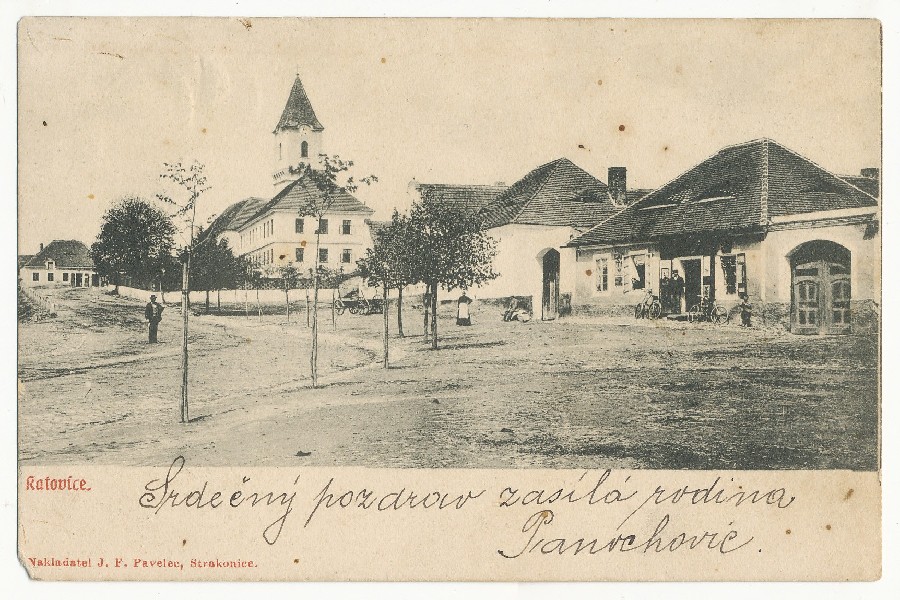 Katovice.
Srdečný pozdrav zasílá rodina
Panochovic.
Nakladatel J. F. Pavelec, Strakonice.